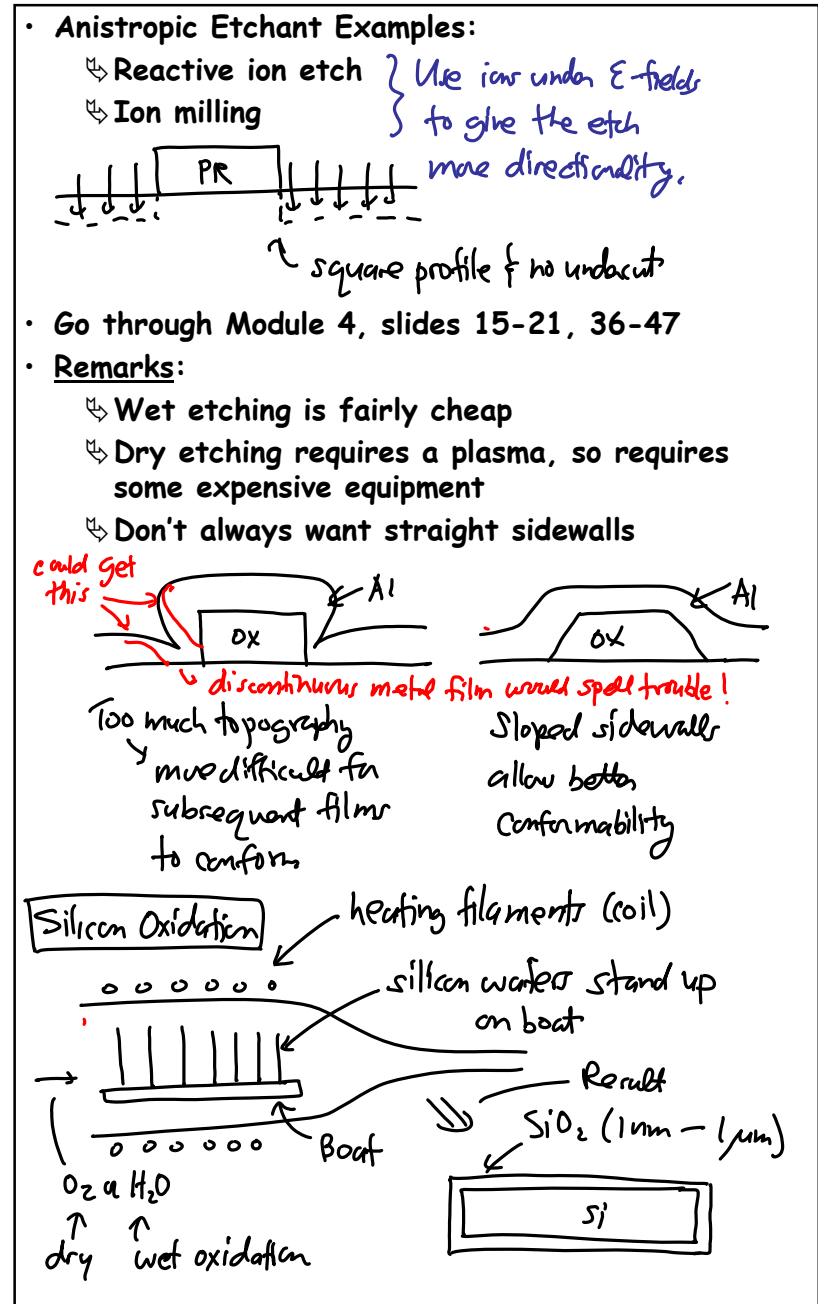 • Anistropic Etchant Examples:
↳ Reactive ion etch
↳ Ion milling
Use ions under E-fields
to give the etch
more directionality.
PR
square profile & no undercut
• Go through Module 4, slides 15-21, 36-47
• Remarks:
↳ Wet etching is fairly cheap
↳ Dry etching requires a plasma, so requires
some expensive equipment
↳ Don't always want straight sidewalls
could get
this
Al
ox
Al
ox
discontinuous metal film would spell trouble!
Too much topography
more difficult for
subsequent films
to conform
Sloped sidewalls
allow better
conformability
Silicon Oxidation
heating filaments (coil)
silicon wafers stand up
on boat
Result
SiO₂ (1nm – 1μm)
Boat
Si
O₂ or H₂O
dry wet oxidation